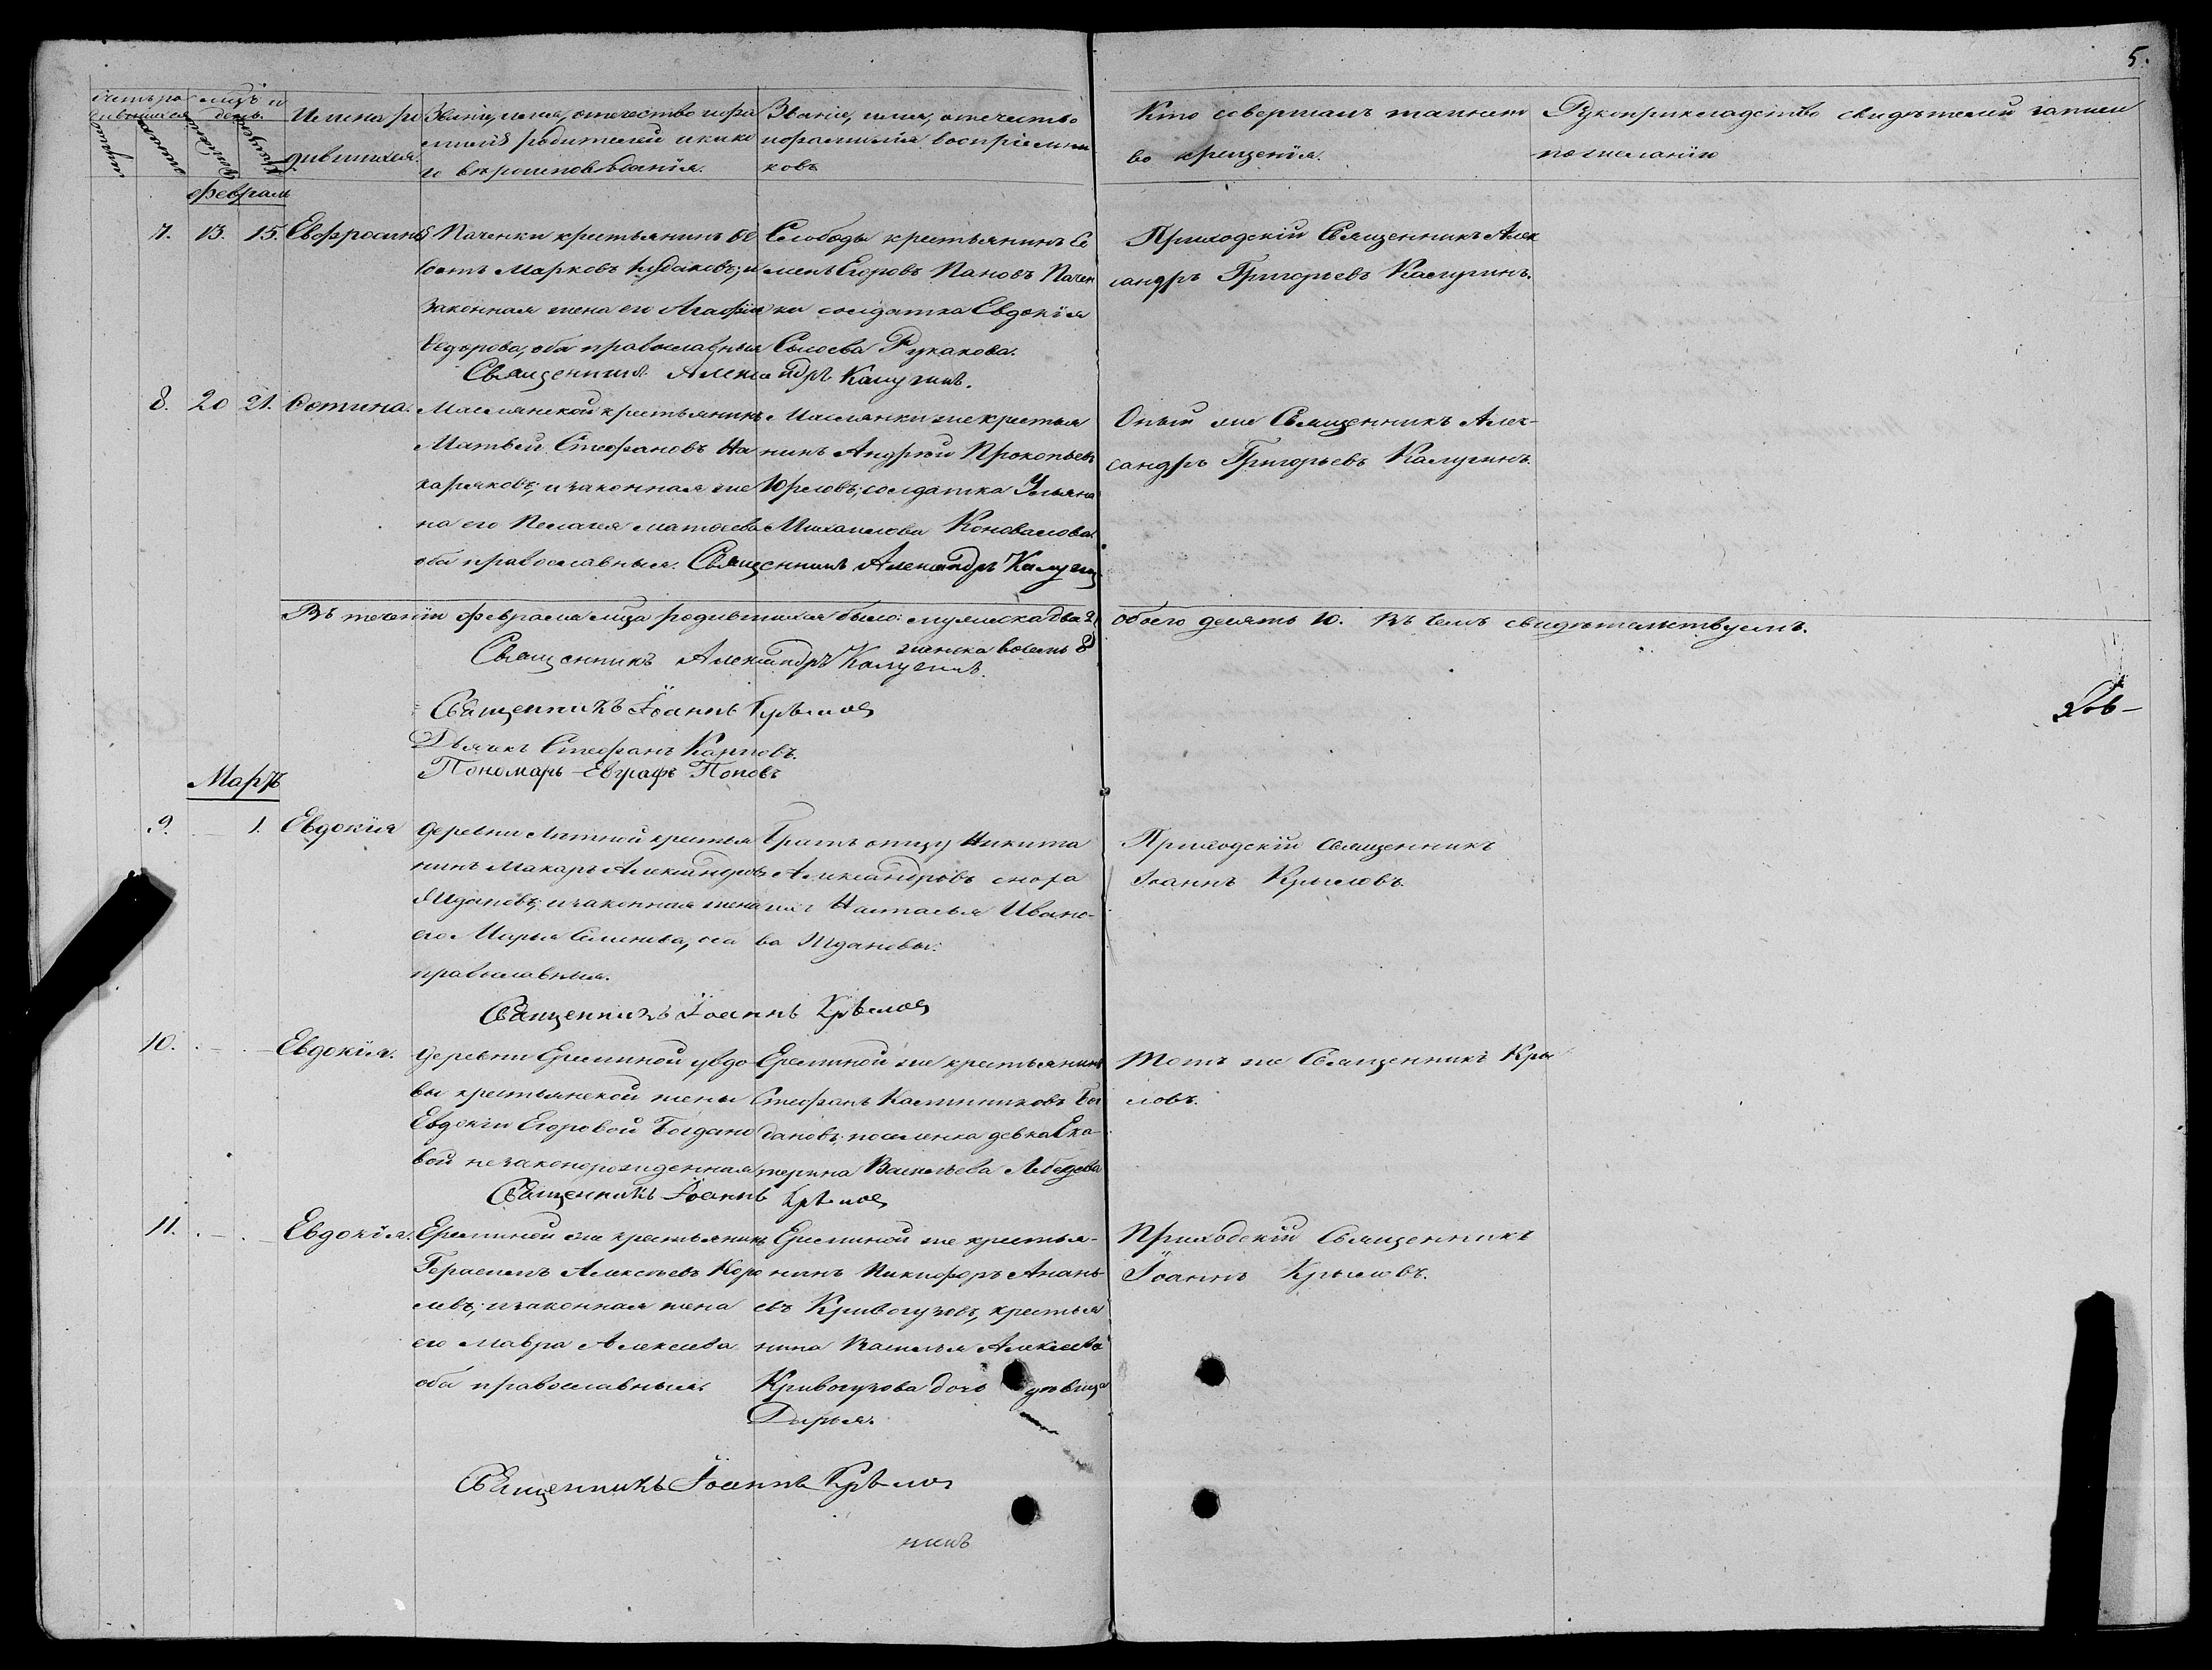 5.
Счетъ ро
дившихся
мцъ и
день.
Имена ро
дившихся.
Званіе, имя, отечество и фа
милія родителей и како
го вѣроисповѣданія.
Званіе, имя, отечество
и фамилія воспріемни
ковъ
Кто совершалъ таинст
во крещенія.
Рукоприкладство свидѣтелей записи
по желанію
Февраль
7. 13. 15. Евфросинія
Паченки крестьянинъ
Марковъ и
законная жена его Агафья
Ѳедорова, оба православныя
Слободы крестьянинъ Се
менъ Егоровъ Пановъ Пачен
ки солдатка Евдокія
Сысоева Рукакова.
Приходскій Священникъ Алек
сандръ Григорьевъ Калугинъ.
Священникъ Александръ Калугинъ.
8. 20 21. Фотина.
Маслянской крестьянинъ
Матвей Стефановъ На
каряковъ, и законная же
на его Пелагея Матвеева
оба православныя.
Маслянки же крестья
нинъ Андрей Прокопьевъ
Юрловъ, солдатка Ульяна
Михаилова Коновалова.
Оный же Священникъ Алек-
сандръ Григорьевъ Калугинъ.
Священникъ Александръ Калугинъ
Въ теченіи февраля мца родившихся было: мужеска два 2
женска восемь 8
обоего десять 10. Въ чемъ свидѣтельствуемъ.
Священникъ Александръ Калугинъ.
Священникъ Іоаннъ Крыловъ
Дьячекъ Стефанъ Карповъ.
Пономарь Евграфъ Поповъ
Мартъ
9. — 1. Евдокія
Деревни Лѣтной крестья
нинъ Макаръ Александровъ
Ждановъ, и законная жена
его Марья Семенова, оба
православныя.
Братъ отцу Никита
Александровъ сноха
Наталья Ивано-
ва Ждановы.
Приходскій Священникъ
Іоаннъ Крыловъ.
Священникъ Іоаннъ Крыловъ
10. — — Евдокія.
Деревни Ереминой у вдо
вы крестьянской жены
Евдокіи Егоровой Богдано
вой незаконорожденная
Ереминой же крестьянинъ
Стефанъ Калинниковъ Бог
дановъ, поселенка девка Ека
терина Васильева Лебедева
Тотъ же Священникъ Кры
ловъ.
Священникъ Іоаннъ Крыловъ
11. — — Евдокія.
Ереминой же крестьянинъ
Герасимъ Алексѣевъ Коро
левъ, и законная жена
его Мавра Алексеева
оба православныя.
Ереминой же крестья-
нинъ Никифоръ Анань-
евъ Кривогузовъ, крестья
нина Василья Алексеева
Кривогузова дочь девица
Дарья.
Приходскій Священникъ
Іоаннъ Крыловъ.
Священникъ Іоаннъ Крыловъ